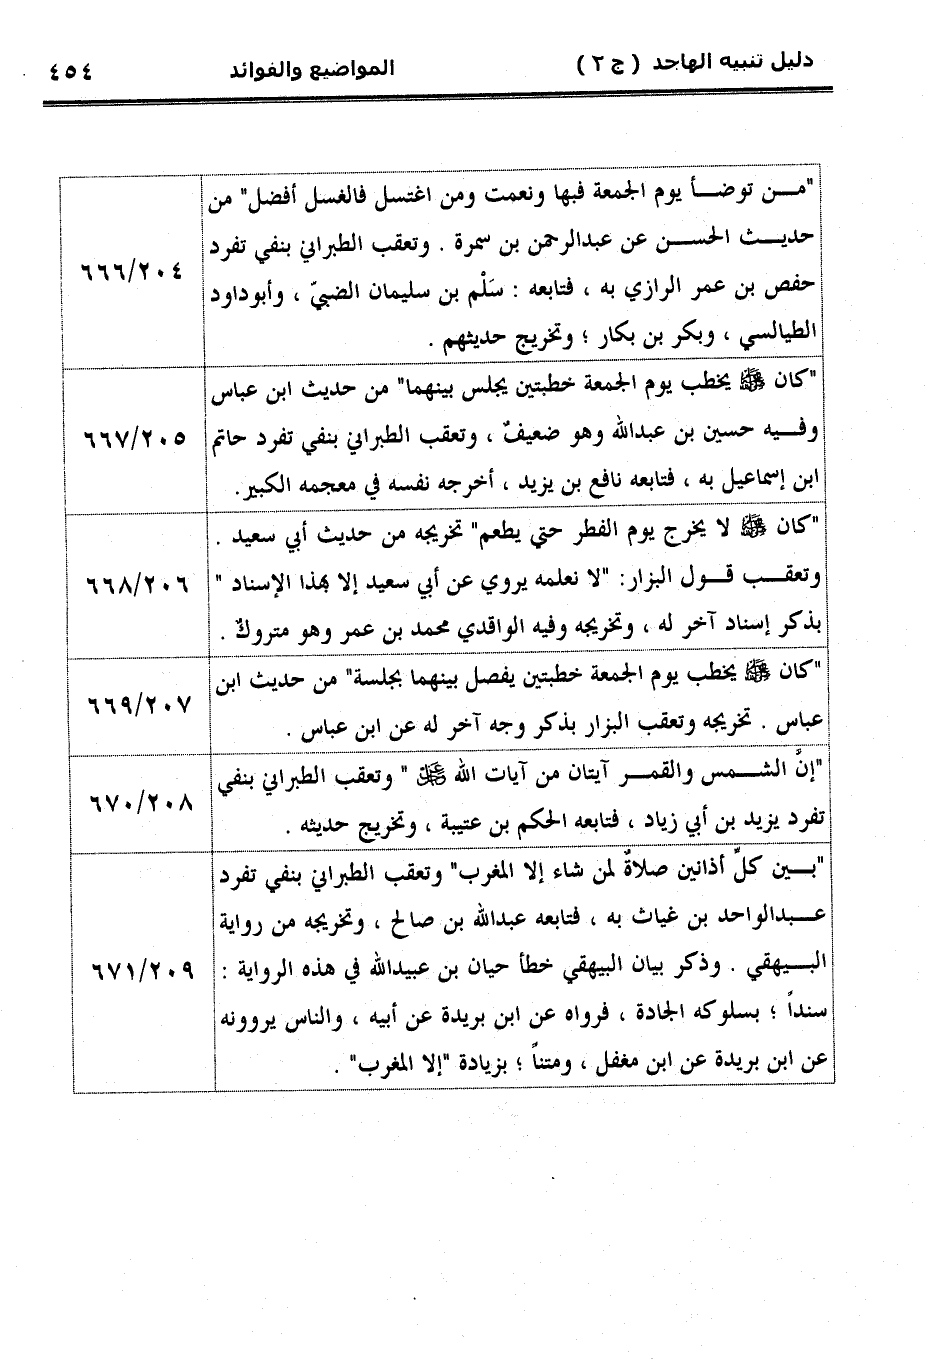 دليل تنبيه الهاجد ( ج ٢ ) المواضيع والفوائد ٤٥٤
"مـــن توضـــأ يوم الجمعة فبها ونعمت ومن اغتسل فالغسل أفضل" من
حديـــث الحســـن عن عبدالرحمن بن سمرة . وتعقب الطبراني بنفي تفرد
حفص بن عمر الرازي به ، فتابعه : سَلْم بن سليمان الضبيّ ، وأبوداود
الطيالسي ، وبكر بن بكار ؛ وتخريج حديثهم .
٦٦٦/٢٠٤
"كان ﷺ يخطب يوم الجمعة خطبتين يجلس بينهما" من حديث ابن عباس
وفـــيه حسين بن عبدالله وهو ضعيفٌ ، وتعقب الطبراني بنفي تفرد حاتم
ابن إسماعيل به ، فتابعه نافع بن يزيد ، أخرجه نفسه في معجمه الكبير.
٦٦٧/٢٠٥
"كان ﷺ لا يخرج يوم الفطر حتي يطعم" تخريجه من حديث أبي سعيد .
وتعقـــب قـــول البزار: "لا نعلمه يروي عن أبي سعيد إلا بهذا الإسناد "
بذكر إسناد آخر له ، وتخريجه وفيه الواقدي محمد بن عمر وهو متروكٌ .
٦٦٨/٢٠٦
"كان ﷺ يخطب يوم الجمعة خطبتين يفصل بينهما بجلسة" من حديث ابن
عباس . تخريجه وتعقب البزار بذكر وجه آخر له عن ابن عباس .
٦٦٩/٢٠٧
"إنَّ الشـــمس والقمـــر آيتان من آيات الله ﷻ " وتعقب الطبراني بنفي
تفرد يزيد بن أبي زياد ، فتابعه الحكم بن عتيبة ، وتخريج حديثه .
٦٧٠/٢٠٨
"بـــين كلِّ أذانين صلاةٌ لمن شاء إلا المغرب" وتعقب الطبراني بنفي تفرد
عـــبدالواحد بن غياث به ، فتابعه عبدالله بن صالح ، وتخريجه من رواية
البـــيهقي . وذكر بيان البيهقي خطأ حيان بن عبيدالله في هذه الرواية :
سنداً ؛ بسلوكه الجادة ، فرواه عن ابن بريدة عن أبيه ، والناس يروونه
عن ابن بريدة عن ابن مغفل ، ومتناً ؛ بزيادة "إلا المغرب" .
٦٧١/٢٠٩